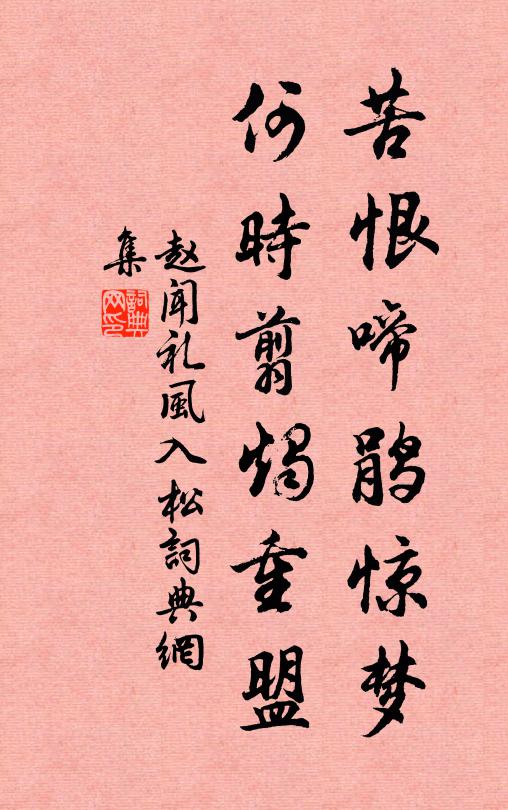 苦恨啼鹃惊梦
何時翦燭重盟
赵闻礼風入松詞典網
集
詞典
网印